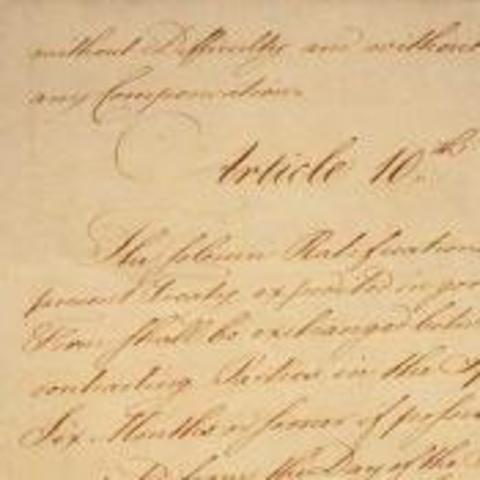 without Difficulty and without
any Compensation.
Article 10.th
The solemn Ratifications
present Treaty expedited in good
Form shall be exchanged betw
contracting Parties in the Sp
Six Months or sooner if possi
the Day of the